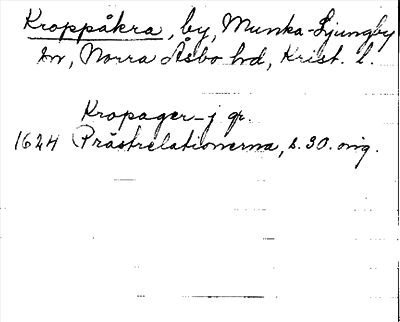 Kroppåkra, by, Munka-Ljungby
sn, Norra Åsbo hd, Krist. l.
Kropager - j gr.
1624 Prästrelationerna, s. 30. orig.